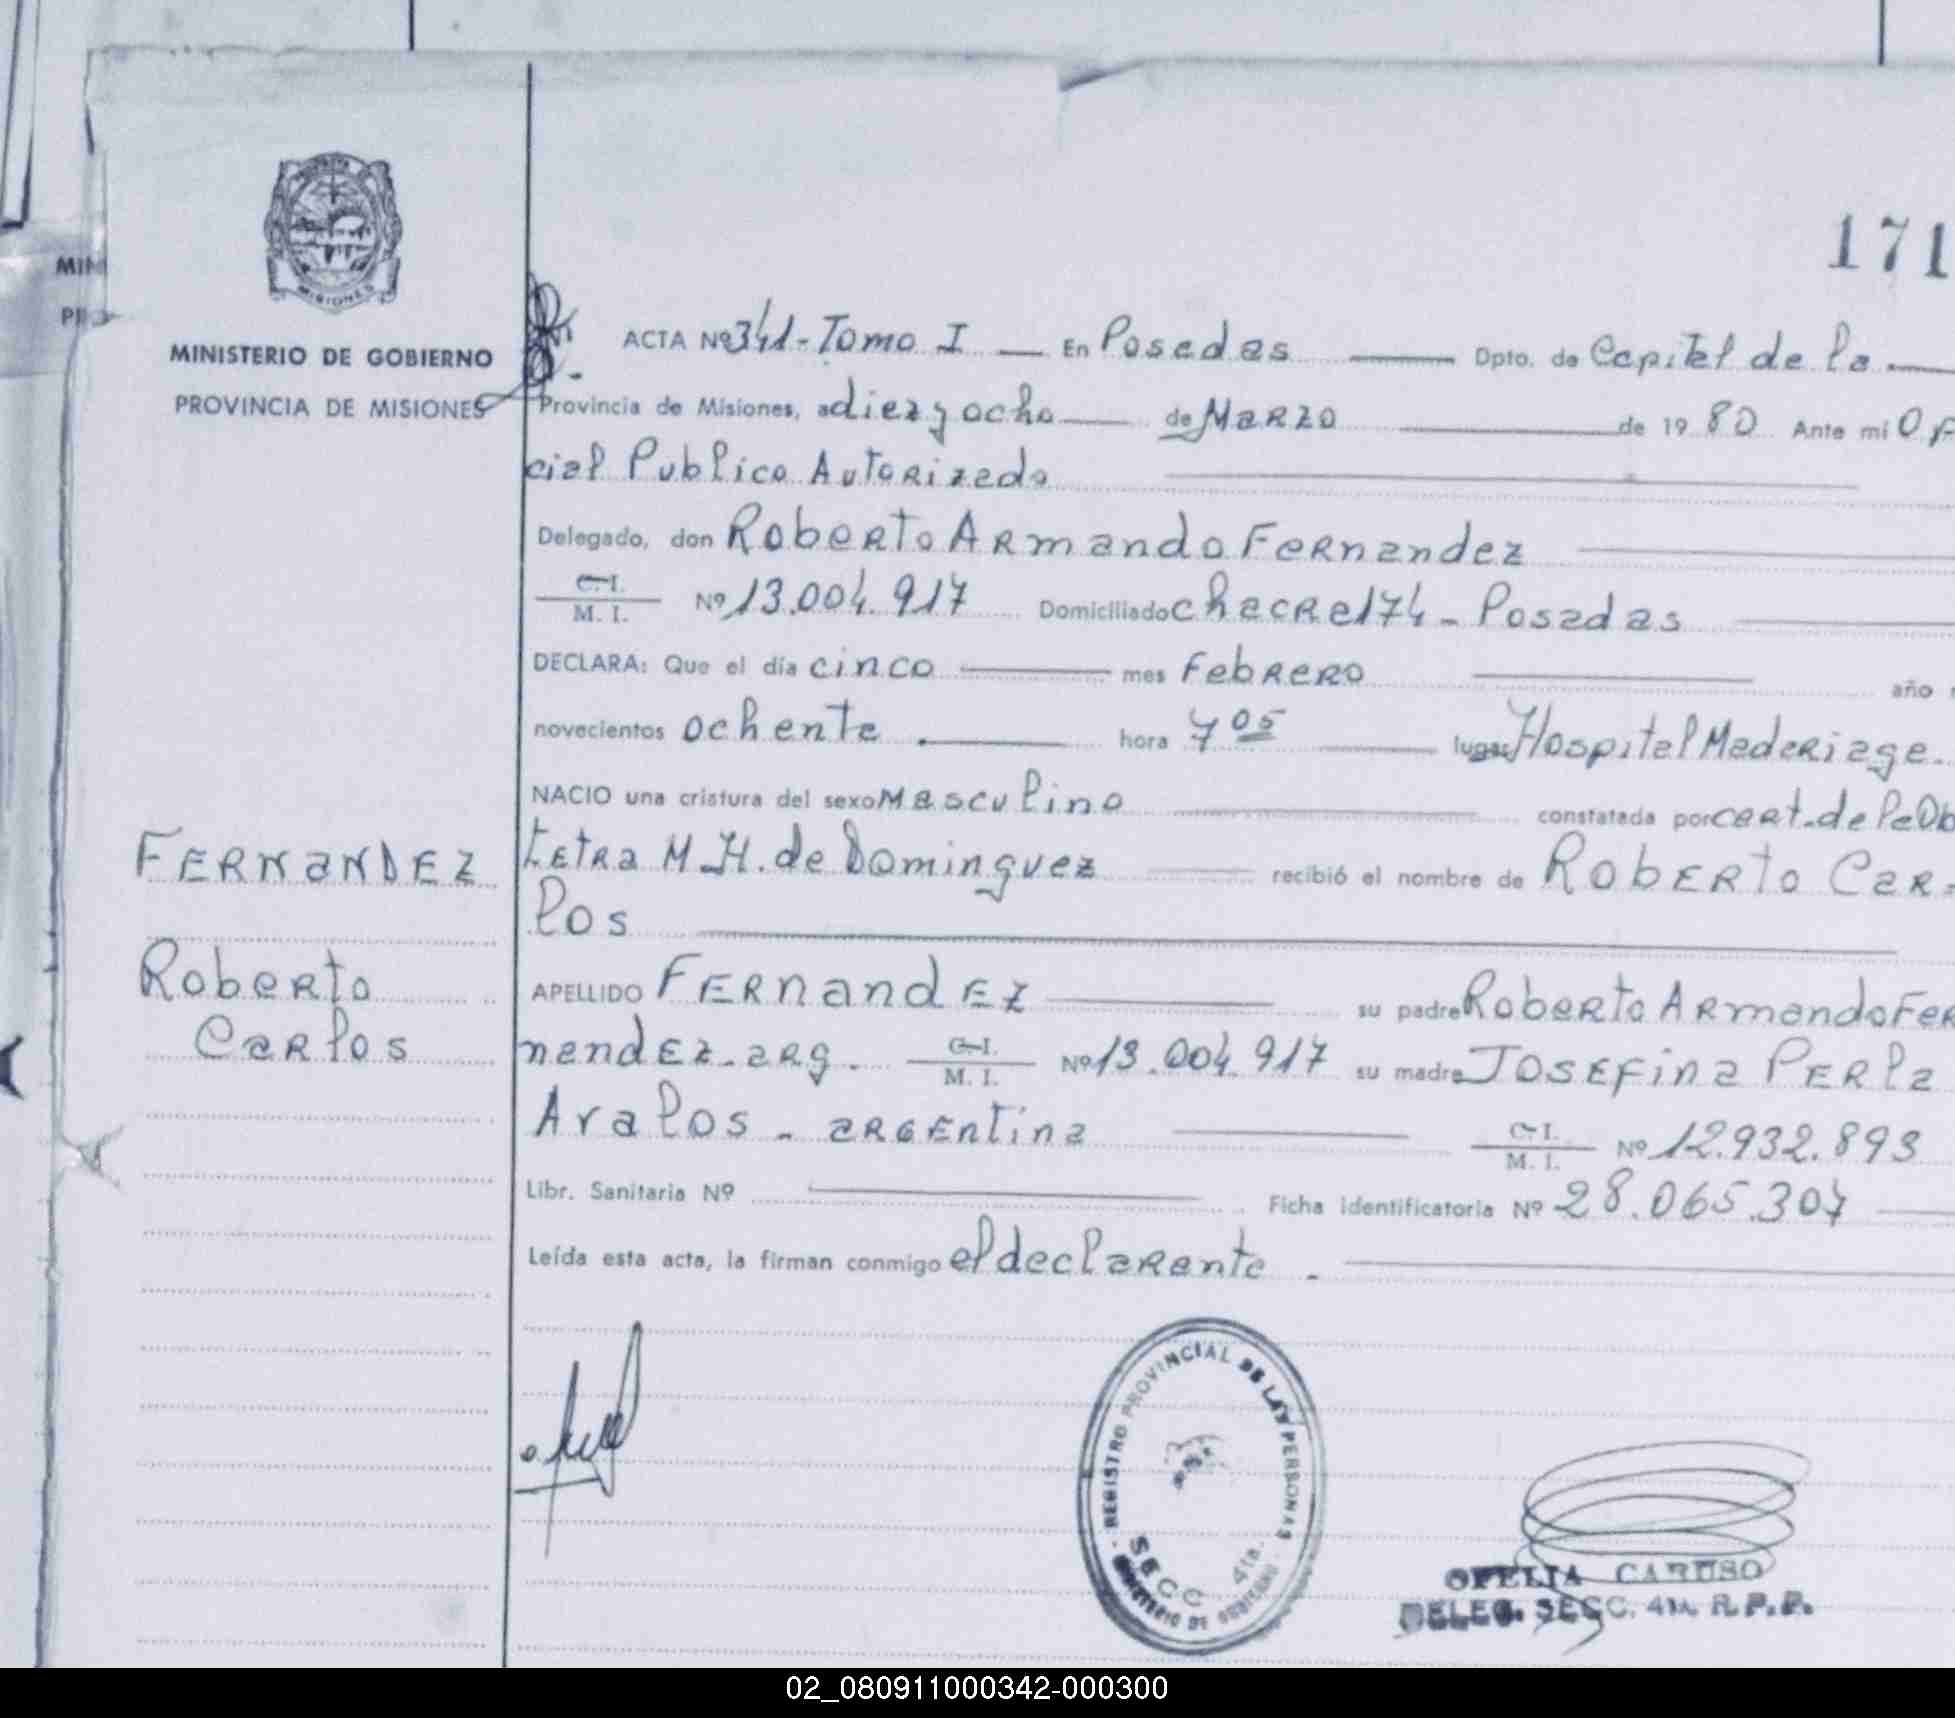 171
MISIONES
MINISTERIO DE GOBIERNO
PROVINCIA DE MISIONES
ACTA Nº 341 - Tomo I — En Posadas — Dpto. de Capital de la —
Provincia de Misiones, a diez y ocho — de Marzo — de 1980 Ante mi
cial Publico Autorizado
Delegado, don Roberto Armando Fernandez
C.I.
M. I. Nº 13.004.917 Domiciliado chacra 174 - Posadas
DECLARA: Que el día cinco — mes Febrero — año
novecientos ochenta . — hora 7 05 — lugar Hospital Madariaga.
NACIO una criatura del sexo Masculino — constatada por cert. de la Ob
tetra M. H. de Dominguez — recibió el nombre de Roberto Car-
los
APELLIDO Fernandez — su padre Roberto Armando Fer
nandez - arg. C.I.
M. I. Nº 13.004.917 su madre Josefina Perla
Avalos - argentina — C.I.
M. I. Nº 12.932.893
Libr. Sanitaria Nº — Ficha identificatoria Nº 28.065.307 —
Leída esta acta, la firman conmigo el declarante . —
FERNANDEZ
Roberto
Carlos
REGISTRO PROVINCIAL DE LAS PERSONAS
SECC 4ta.
MINISTERIO DE GOBIERNO
OFELIA CARUSO
DELEG. SECC. 4ta. R.P.P.
02_080911000342-000300